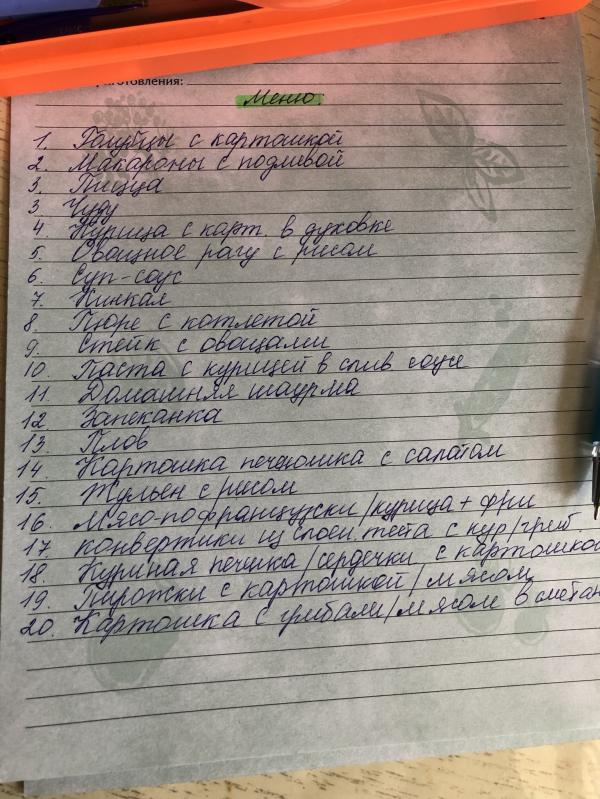 готовления:
Меню:
1. Голубцы с картошкой
2. Макароны с подливой
3. Пицца
3 Чуду
4 Курица с карт. в духовке
5. Овощное рагу с рисом
6. Суп-соус
7. Хинкал
8 Пюре с котлетой
9. Стейк с овощами
10. Паста с курицей в слив соусе
11. Домашняя шаурма
12 Запеканка
13. Плов
14. Картошка печёошка с салатом
15. Жульен с рисом
16. Мясо-пофранцузски/курица + фри
17. конвертики из слоен. теста с кур/гриб.
18. Куриная печенка/сердечки с картошкой
19. Пирожки с картошкой/мясом
20. Картошка с грибами/мясом в сметан